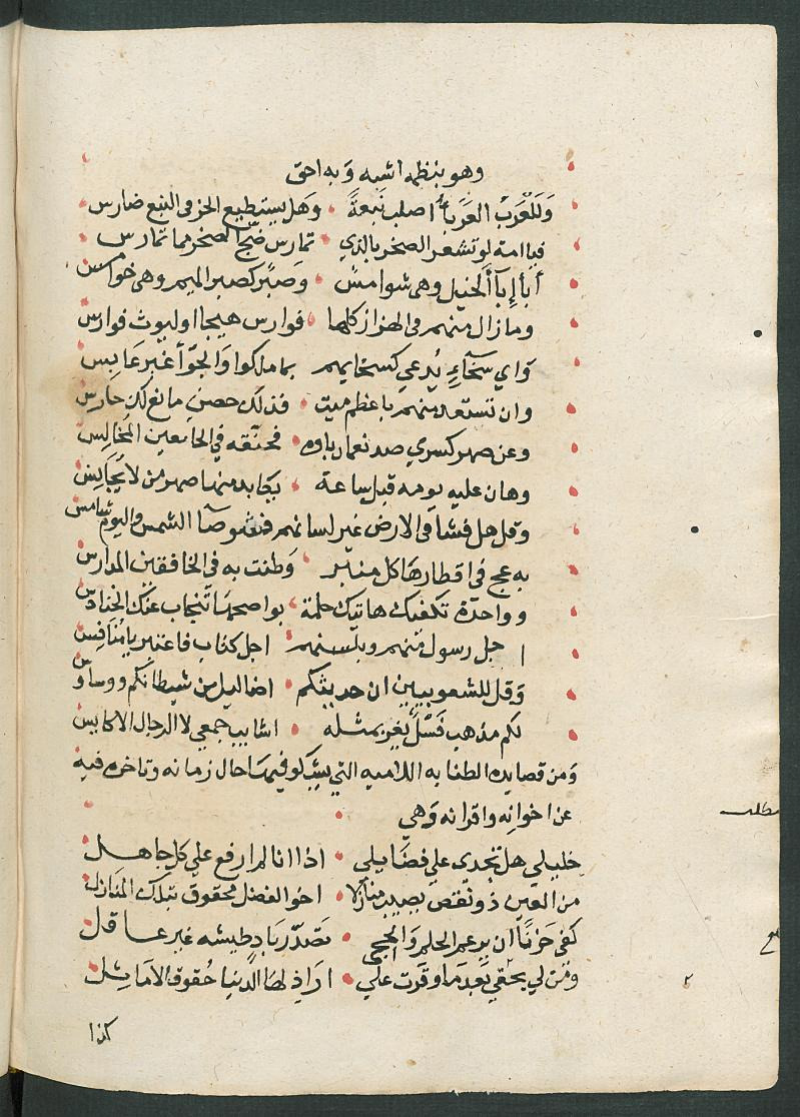 وهو بنظمه اشبه وَبه احق
وَللعَربْ العَربَا اصلب نَبعةً وَهل يستطيع الحز في النبع ضارس
فيا امة لو تشعر الصخر بالذي تمارس ضج الصخر مما تمارس
أبا إبآ الخيل وهي شوامسٌ وصبر كصبر الهيم وهي خوامس
وما زال منهم في الهزاز كلها فوارس هيجا او ليوث فوارس
وَاي سخآءٍ يُدعي كسخايهم بما ملكوا وَالجوّ أغبر عابس
وان تستعد منهم باعظم ميت فذلك حصن مانع لك حارس
وعن صهر كسري صد نعمان باوه في الخالس
وهان عليه يومه قبل ساعة يكابد منها صهر من لا يجانس
وقل هل فشا في الارض غير لسانهم الشمس واليوم شامس
به عج في اقطارها كل منبر وَطنت به في الخافقين المدارس
وواحدة تكفيك هاتيك حلمة بواضحها تنجاب عنك الحنادس
اجل رسول منهم وبلسنهم اجل كتاب فاعتبر يا مُنافس
وَقل للشعوبيين ان حديثكم اضاليل من شيطانكم ووساوس
لكم مذهب فَسْلٌ يغر بمثله اشاييب جمعي لا الرجال الاكايس
وَمن قصايده الطنانه اللاميه التي يشكو فيها حال زمانه وتاخره فيه
عن اخوانِه واقرانه وَهي
مطلب
خليلي هل تجدي علي فضايلي اذا انا لم ارفع علي كل جاهل
من الغبن ذو نقص يصيب منازلا اخو الفضل محقوق بتلك المنازل
كفي حَزنًا ان يزعم الحلم وَالحجي تصدّر بَادٍ طيشه غير عاقل
وَمن لي بحقي بعد ما وقرت علي اراذلها الدنيا حُقوق الاماثل
كذا